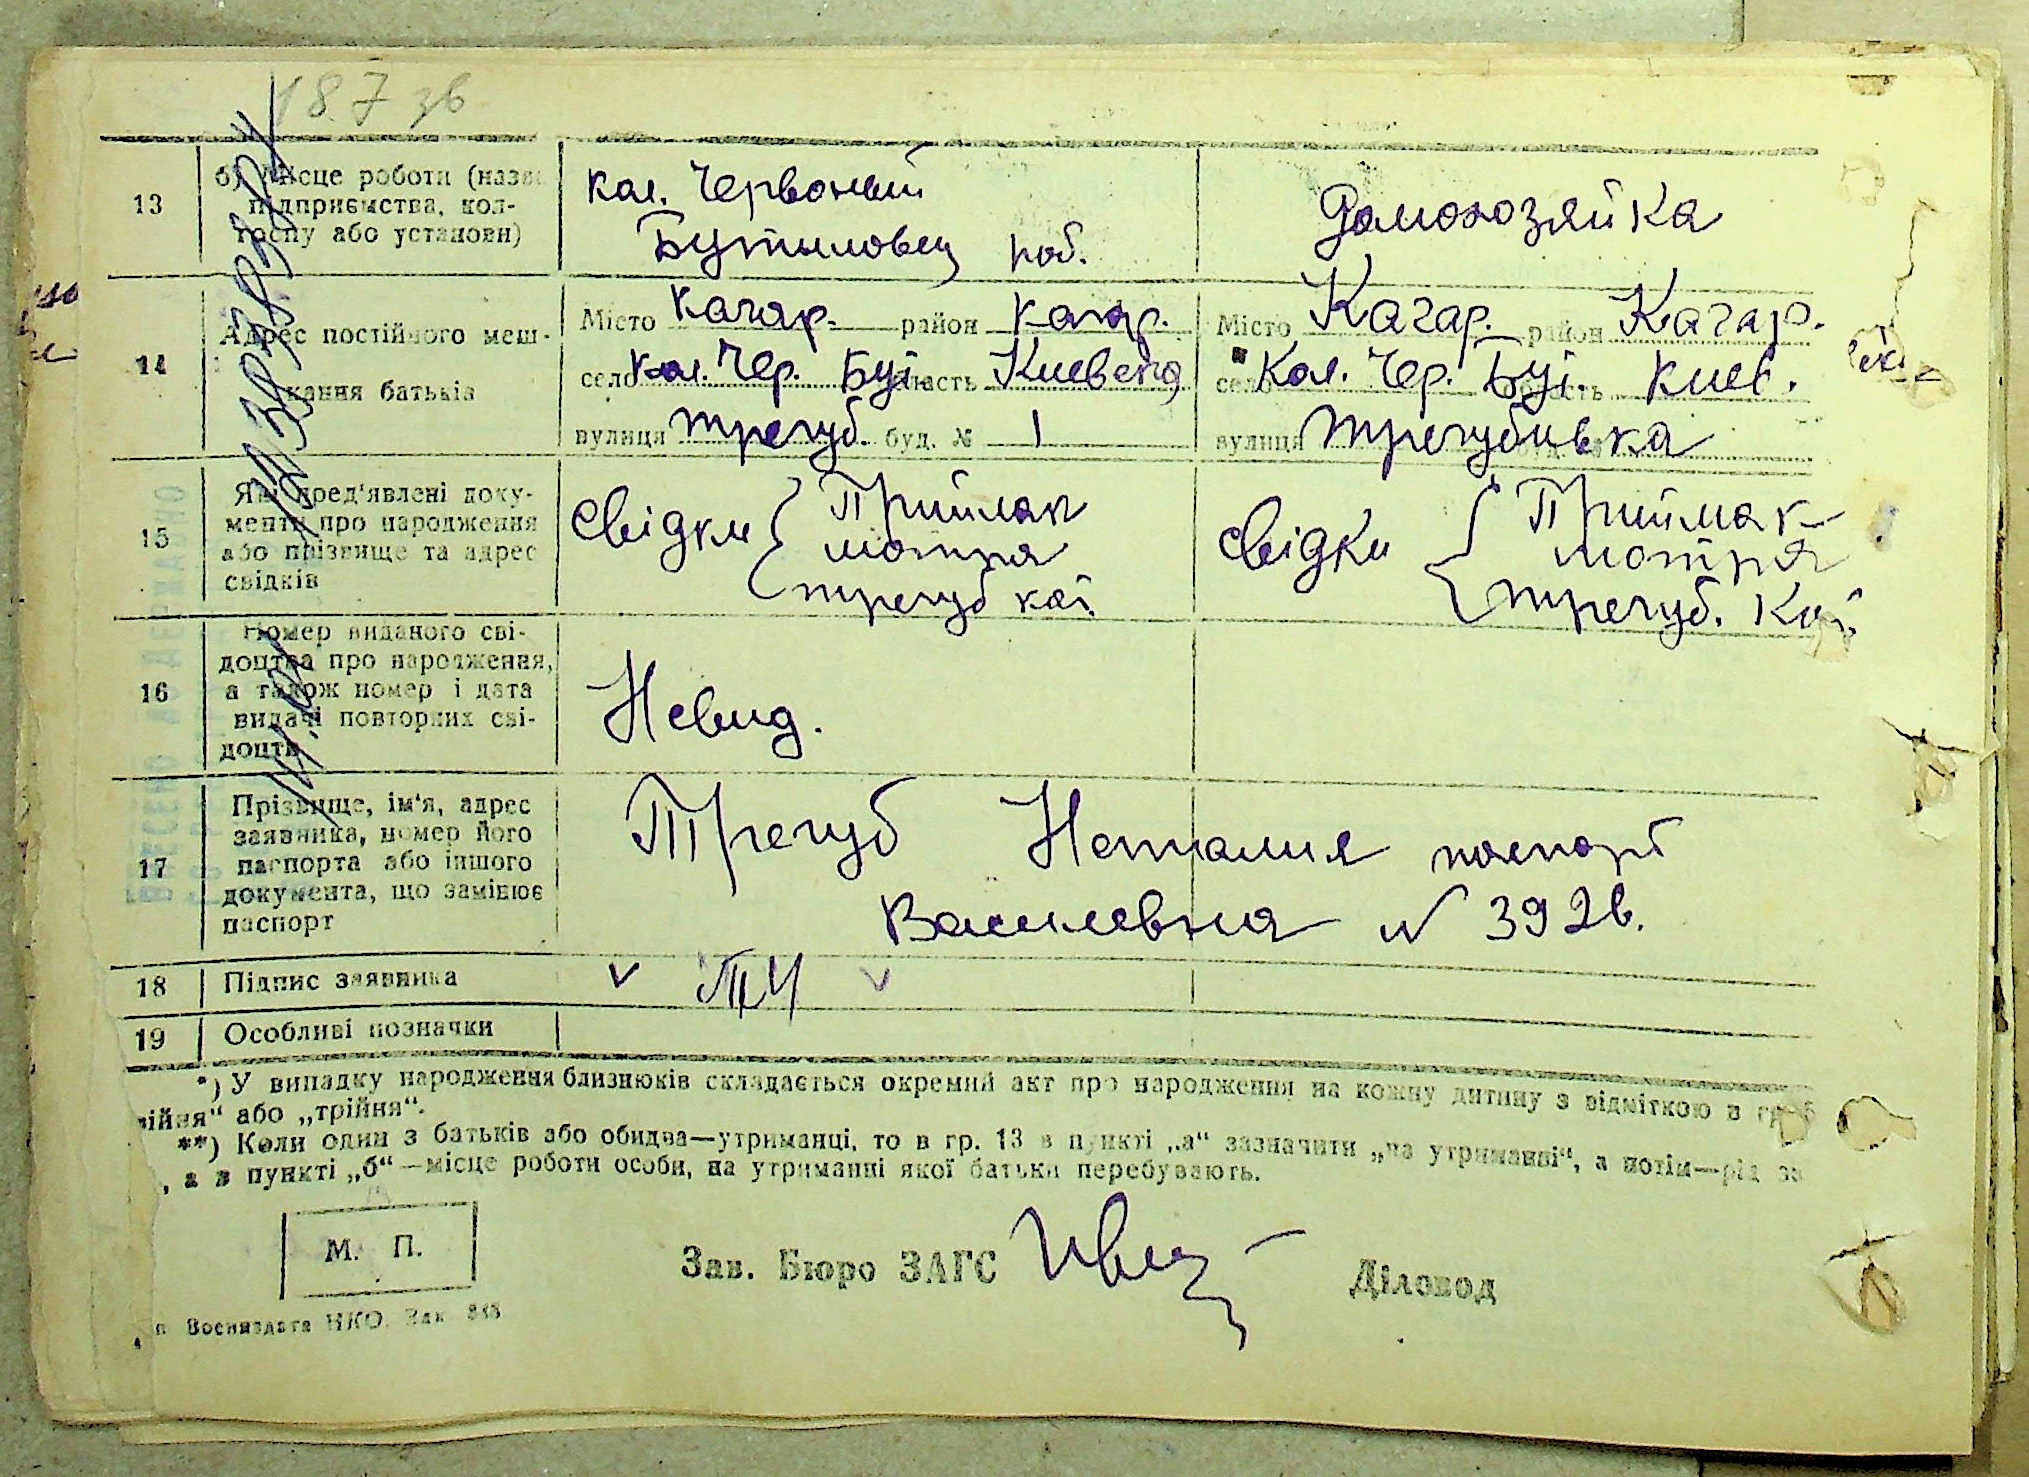 187 зв
13
б) Місце роботи (назва
підприємства, кол-
госпу або установи)
кол. Червоний
Бутыловец роб.
Домохозяйка
14
Адрес постійного меш-
кання батьків
Місто Кагар. район Кагар.
село Кол. Чер. Буі. область Киевска
вулиця Трегуб. буд. № 1
Місто Кагар. район Кагар.
село Кол. Чер. Буі. область Киев.
вулиця Трегубивка
15
Які пред'явлені доку-
менти про народження
або прізвище та адрес
свідків
Свідки Приймак
мотря
трегуб кат.
Свідки Приймак
мотря
трегуб. Кат.
16
Номер виданого сві-
доцтва про народження,
а також номер і дата
видачі повторних сві-
доцтв
Невид.
17
Прізвище, ім'я, адрес
заявника, номер його
паспорта або іншого
документа, що замінює
паспорт
Трегуб Наталия паспорт
Василевна № 392в.
18
Підпис заявника
ТН
19
Особливі позначки
*) У випадку народження близнюків складається окремий акт про народження на кожну дитину з відміткою в гр.
війня" або „трійня".
**) Коли один з батьків або обидва—утриманці, то в гр. 13 в пункті „а" зазначити „на утриманні", а потім—рід за
, а в пункті „б"—місце роботи особи, на утриманні якої батьки перебувають.
М. П.
Зав. Бюро ЗАГС
Діловод
Воениздата НКО. Зак